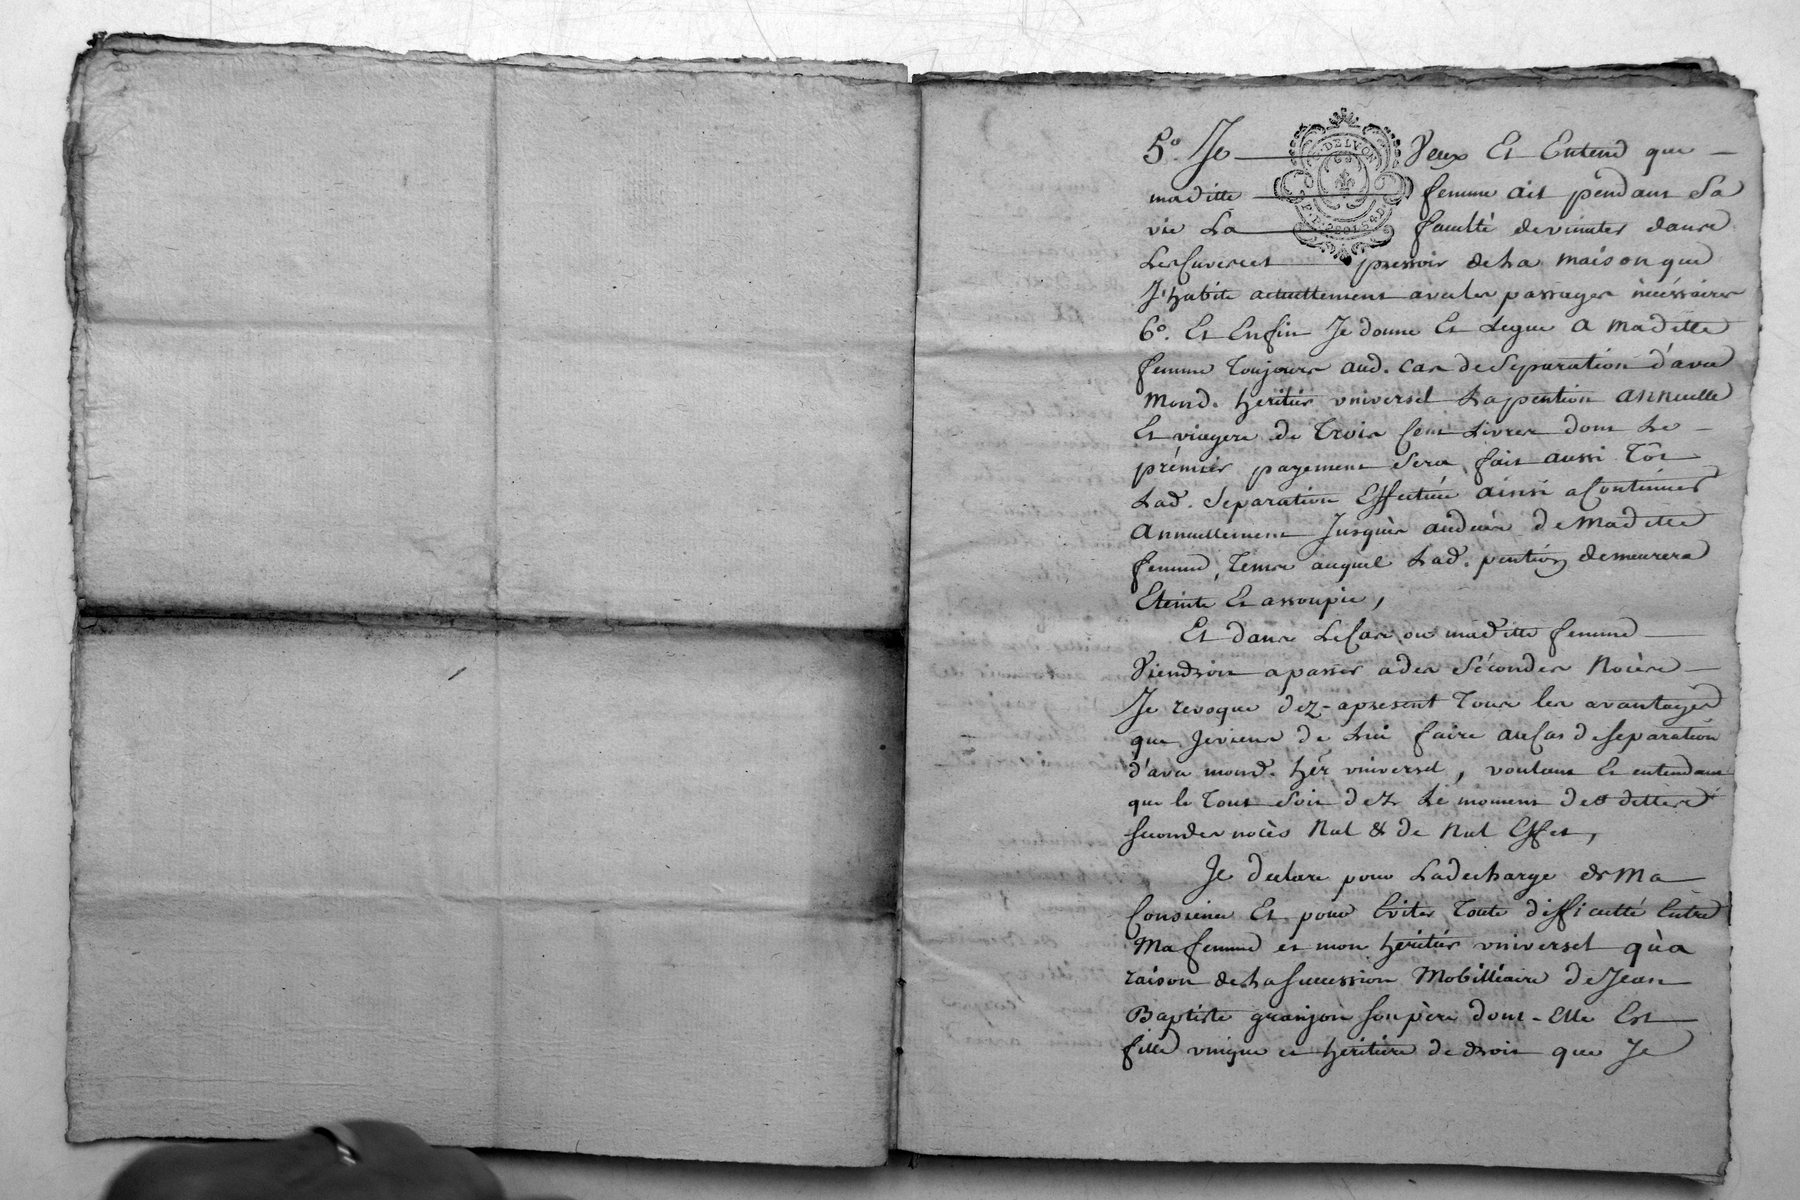 5.º Je Veux Et Entend que
DE LYON
maditte femme ait pendant Sa
vie La faculté devinuter dans
Les Cuves et pressoir de La maison que
J'habite actuellement avec les passages nécéssaires
6.º Et Enfin Je donne Et Legue a maditte
femme Toujours aud. cas de Separation d'avec
mond. heritier vniversel La pention annuelle
Et viagere de Trois Cent Livres dont Le
prémier payement Sera fait aussi Tôt
Lad. Separation Effectuée ainsi a Continuer
annuellement Jusques au deces de maditte
femme, Tems auquel Lad. pention demeurera
Eteinte Et assoupie,
Et dans Le Cas ou maditte femme
Viendroit a passer a des Sécondes Noces
Je revoque dez-apresent Tous les avantages
que Je viens de Lui faire au Cas de Separation
d'avec mond. hér vniversel, voulant Et entendant
que le Tout Soit dez Lé moment des dittes
Secondes nocès Nul & de Nul Effet,
Je declare pour La decharge de Ma
Consience Et pour Eviter Toute difficulté Entre
Ma femme et mon heritier vniversel qu'a
raison de La Succession Mobilliaire de Jean
Baptiste granjon Son père dont Elle Est
fille vnique et heritiere de droit que Je